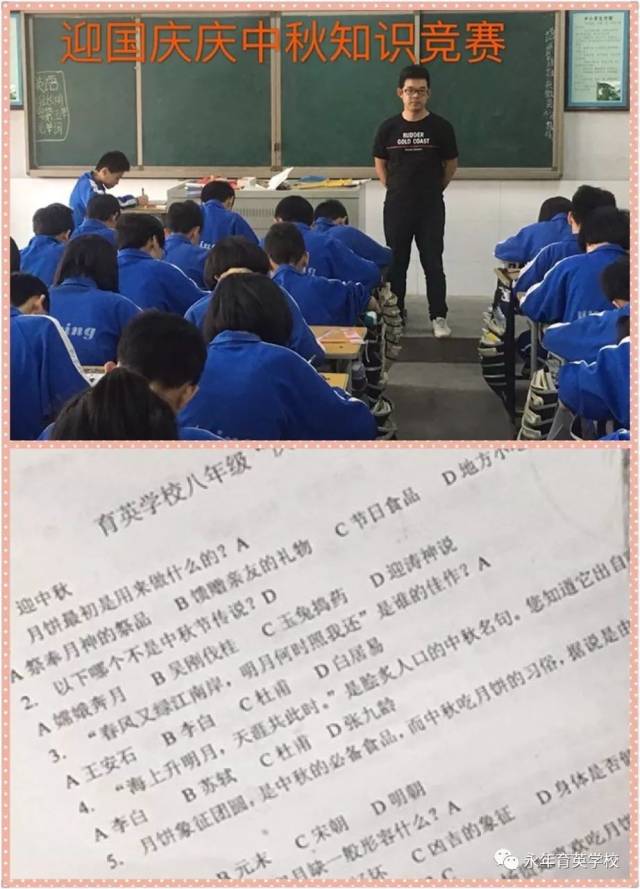 迎国庆庆中秋知识竞赛
RUDDER
GOLD COAST
育英学校八年级“
迎中秋
月饼最初是用来做什么的？A
A 祭奉月神的祭品 B 馈赠亲友的礼物 C 节日食品 D 地方小
2. 以下哪个不是中秋节传说？D
A 嫦娥奔月 B 吴刚伐桂 C 玉兔捣药 D 迎涛神说
3. “春风又绿江南岸，明月何时照我还”是谁的佳作？A
A 王安石 B 李白 C 杜甫 D 白居易
4. “海上升明月，天涯共此时。”是脍炙人口的中秋名句。您知道它出自
A 李白 B 苏轼 C 杜甫 D 张九龄
5. 月饼象征团圆，是中秋的必备食品，而中秋吃月饼的习俗，据说是由
B 元末 C 宋朝 D 明朝
月缺一般形容什么？A
坏 C 凶吉的象征 D 身体是否
吃月饼
永年育英学校